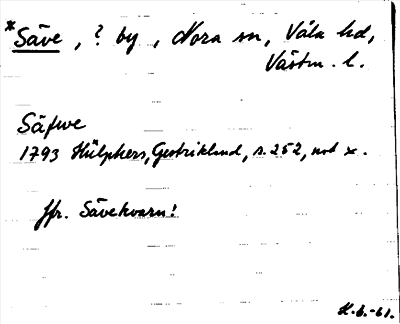 *Säve, ? by, Nora sn, Våla hd,
Västm. l.
Säfwe
1793 Hülphers, Gestrikland, s. 252, not x.
Jfr. Sävekvarn!
H.b.-61.